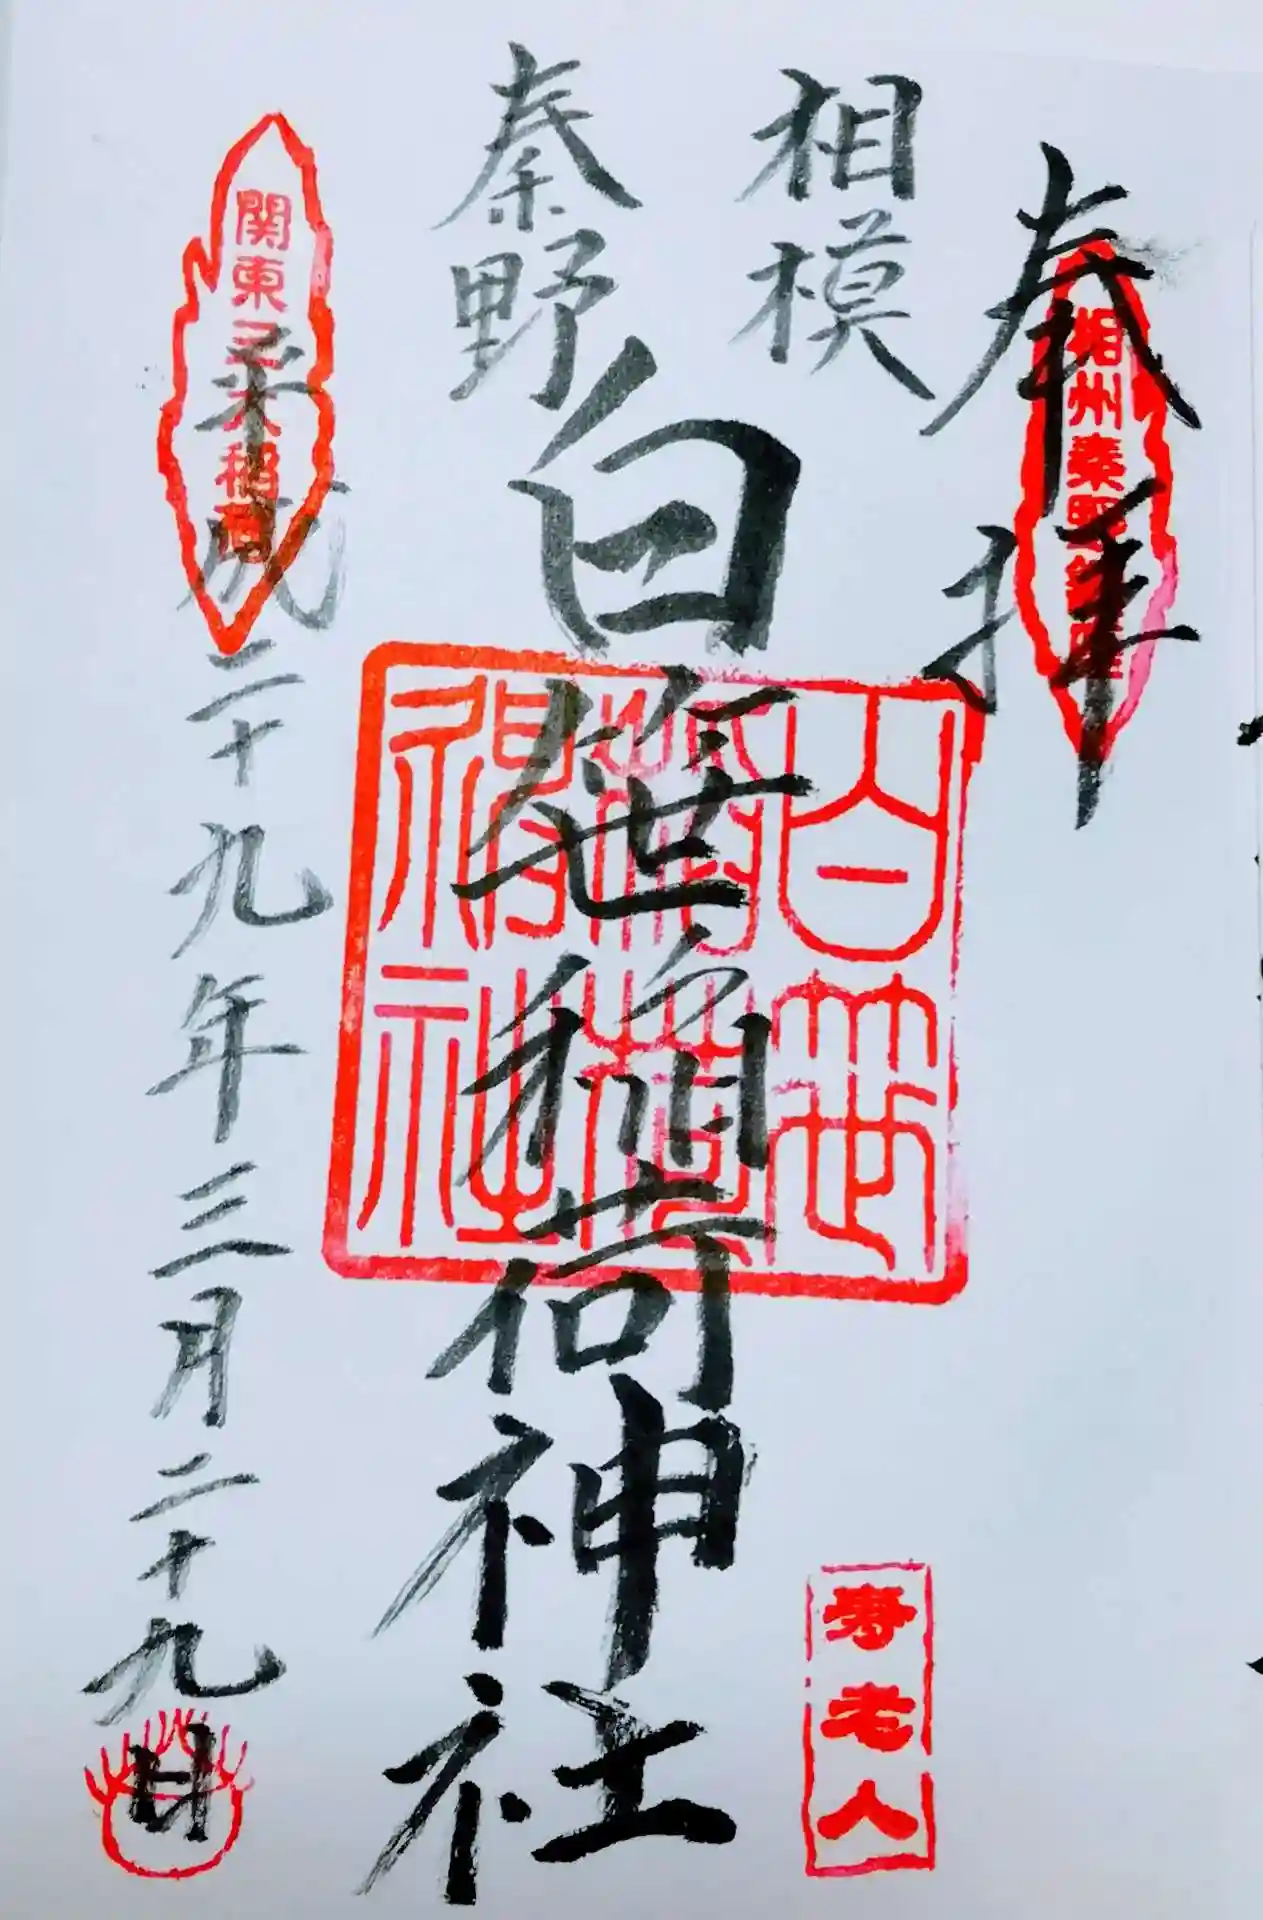 奉拝
相州秦野鎮座
相模
秦野
白笹稲荷神社
白笹
稲荷
神社
寿老人
関東三大稲荷
平成二十九年三月二十九日